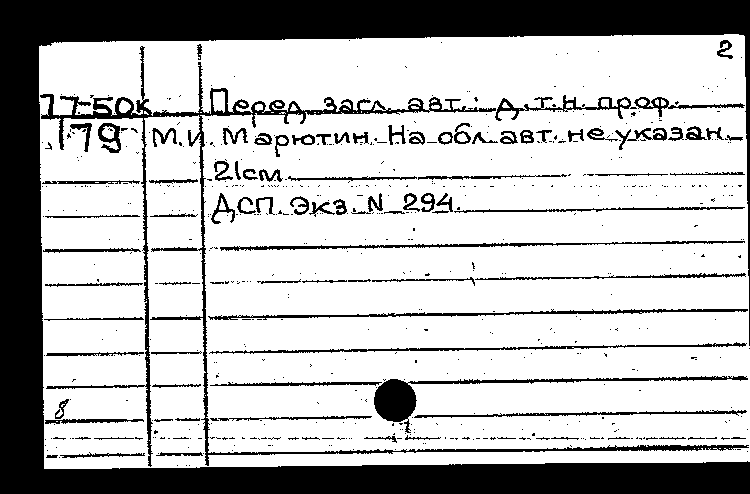 2
77-50к Перед загл. авт.: д.т.н. проф.
179 М.И. Марютин. На обл. авт. не указан.
21см.
ДСП. Экз. N 294.
8